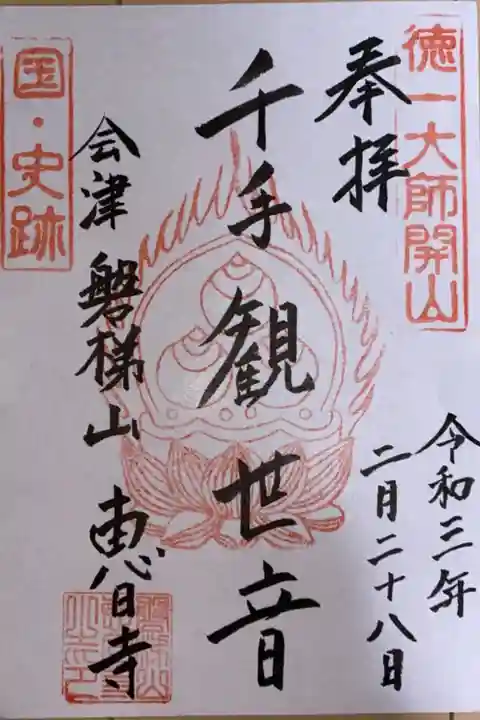 徳一大師開山
奉拝
令和三年
二月二十八日
千手観世音
国・史跡
会津 磐梯山 恵日寺